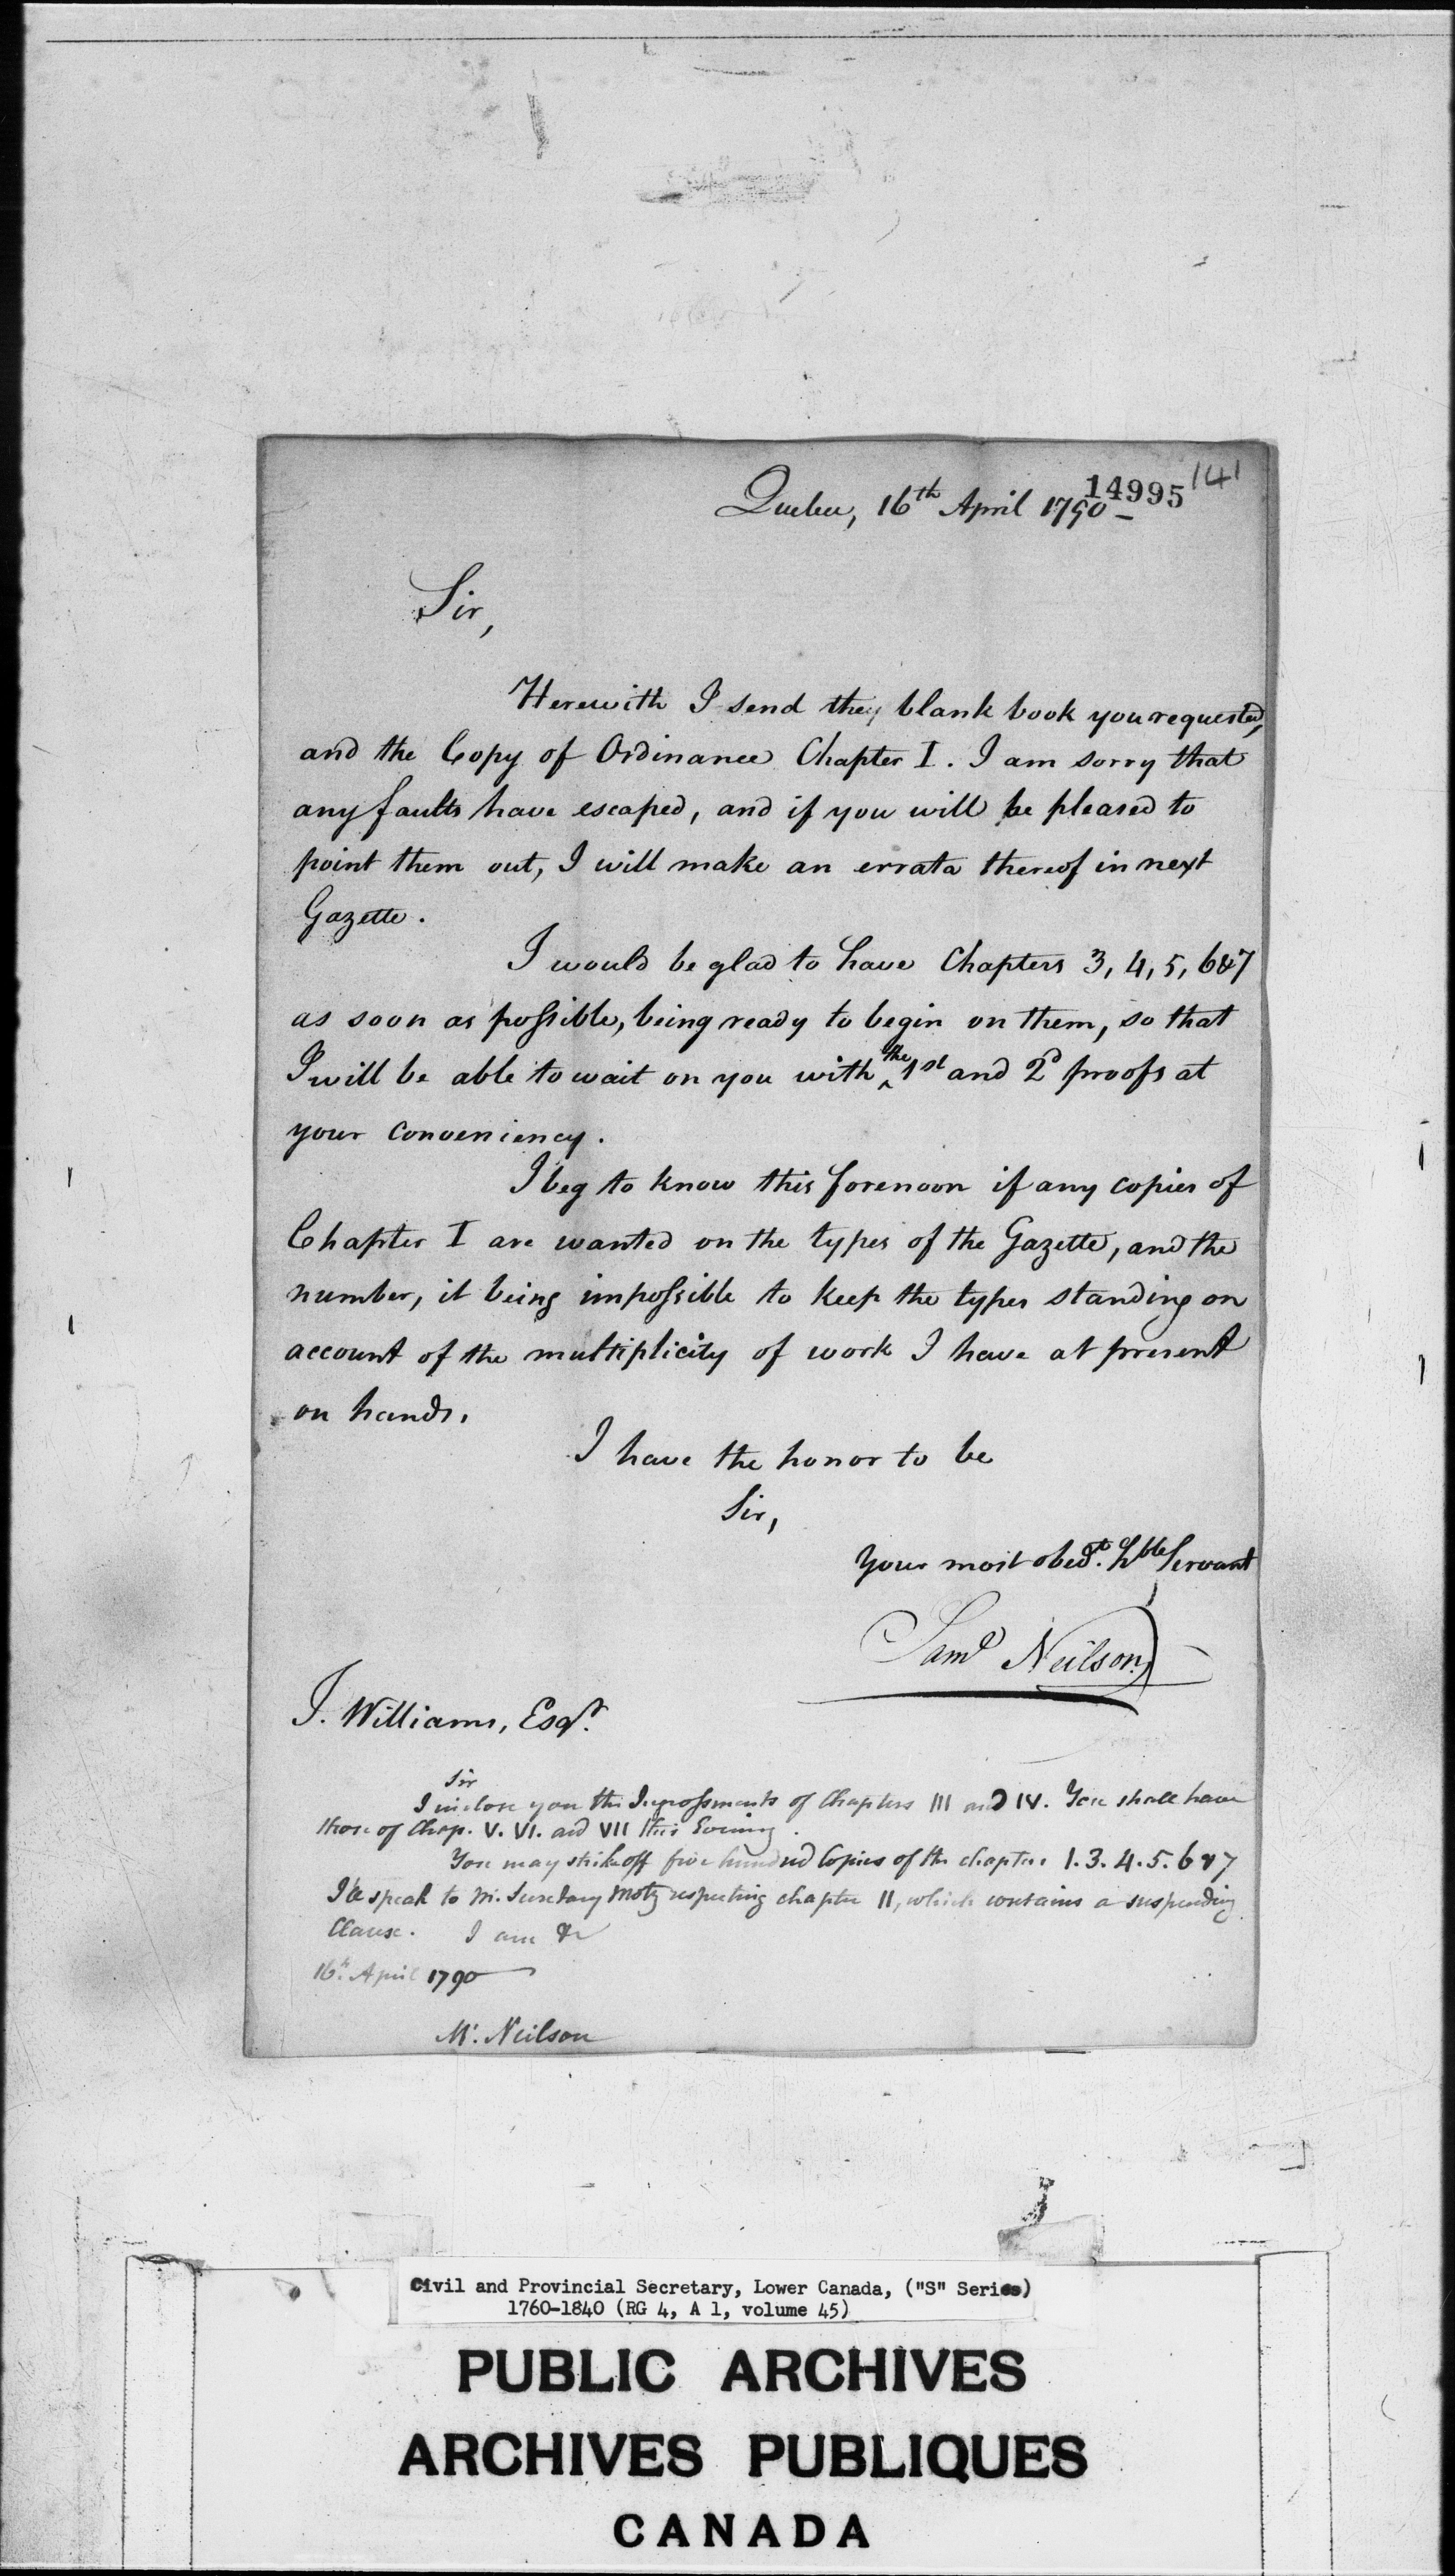 14995 141
Quebec, 16th April 1790 –
Sir,
Herewith I send the blank book you requested,
and the Copy of Ordinance Chapter I. I am sorry that
any faults have escaped, and if you will be pleased to
point them out, I will make an errata thereof in next
Gazette.
I would be glad to have Chapters 3, 4, 5, 6 & 7
as soon as possible, being ready to begin on them, so that
I will be able to wait on you with ^the 1st and 2d proofs at
your conveniency.
I beg to know this forenoon if any copies of
Chapter I are wanted on the types of the Gazette, and the
number, it being impossible to keep the types standing on
account of the multiplicity of work I have at present
on hands.
I have the honor to be
Sir,
Your most obedt. hble Servant
Saml Neilson
J. Williams, Esqr.
Sir
I inclose you the Ingrossments of Chapters III and IV. You shall have
those of Chap. V. VI. and VII this Evening.
You may strike off five hundred Copies of the chapters 1. 3. 4. 5. 6 & 7
I'll speak to Mr. Secretary Motz respecting chapter II, which contains a suspending
Clause. I am &c
16th. April 1790
Mr. Neilson
Civil and Provincial Secretary, Lower Canada, ("S" Series)
1760-1840 (RG 4, A 1, volume 45)
PUBLIC ARCHIVES
ARCHIVES PUBLIQUES
CANADA